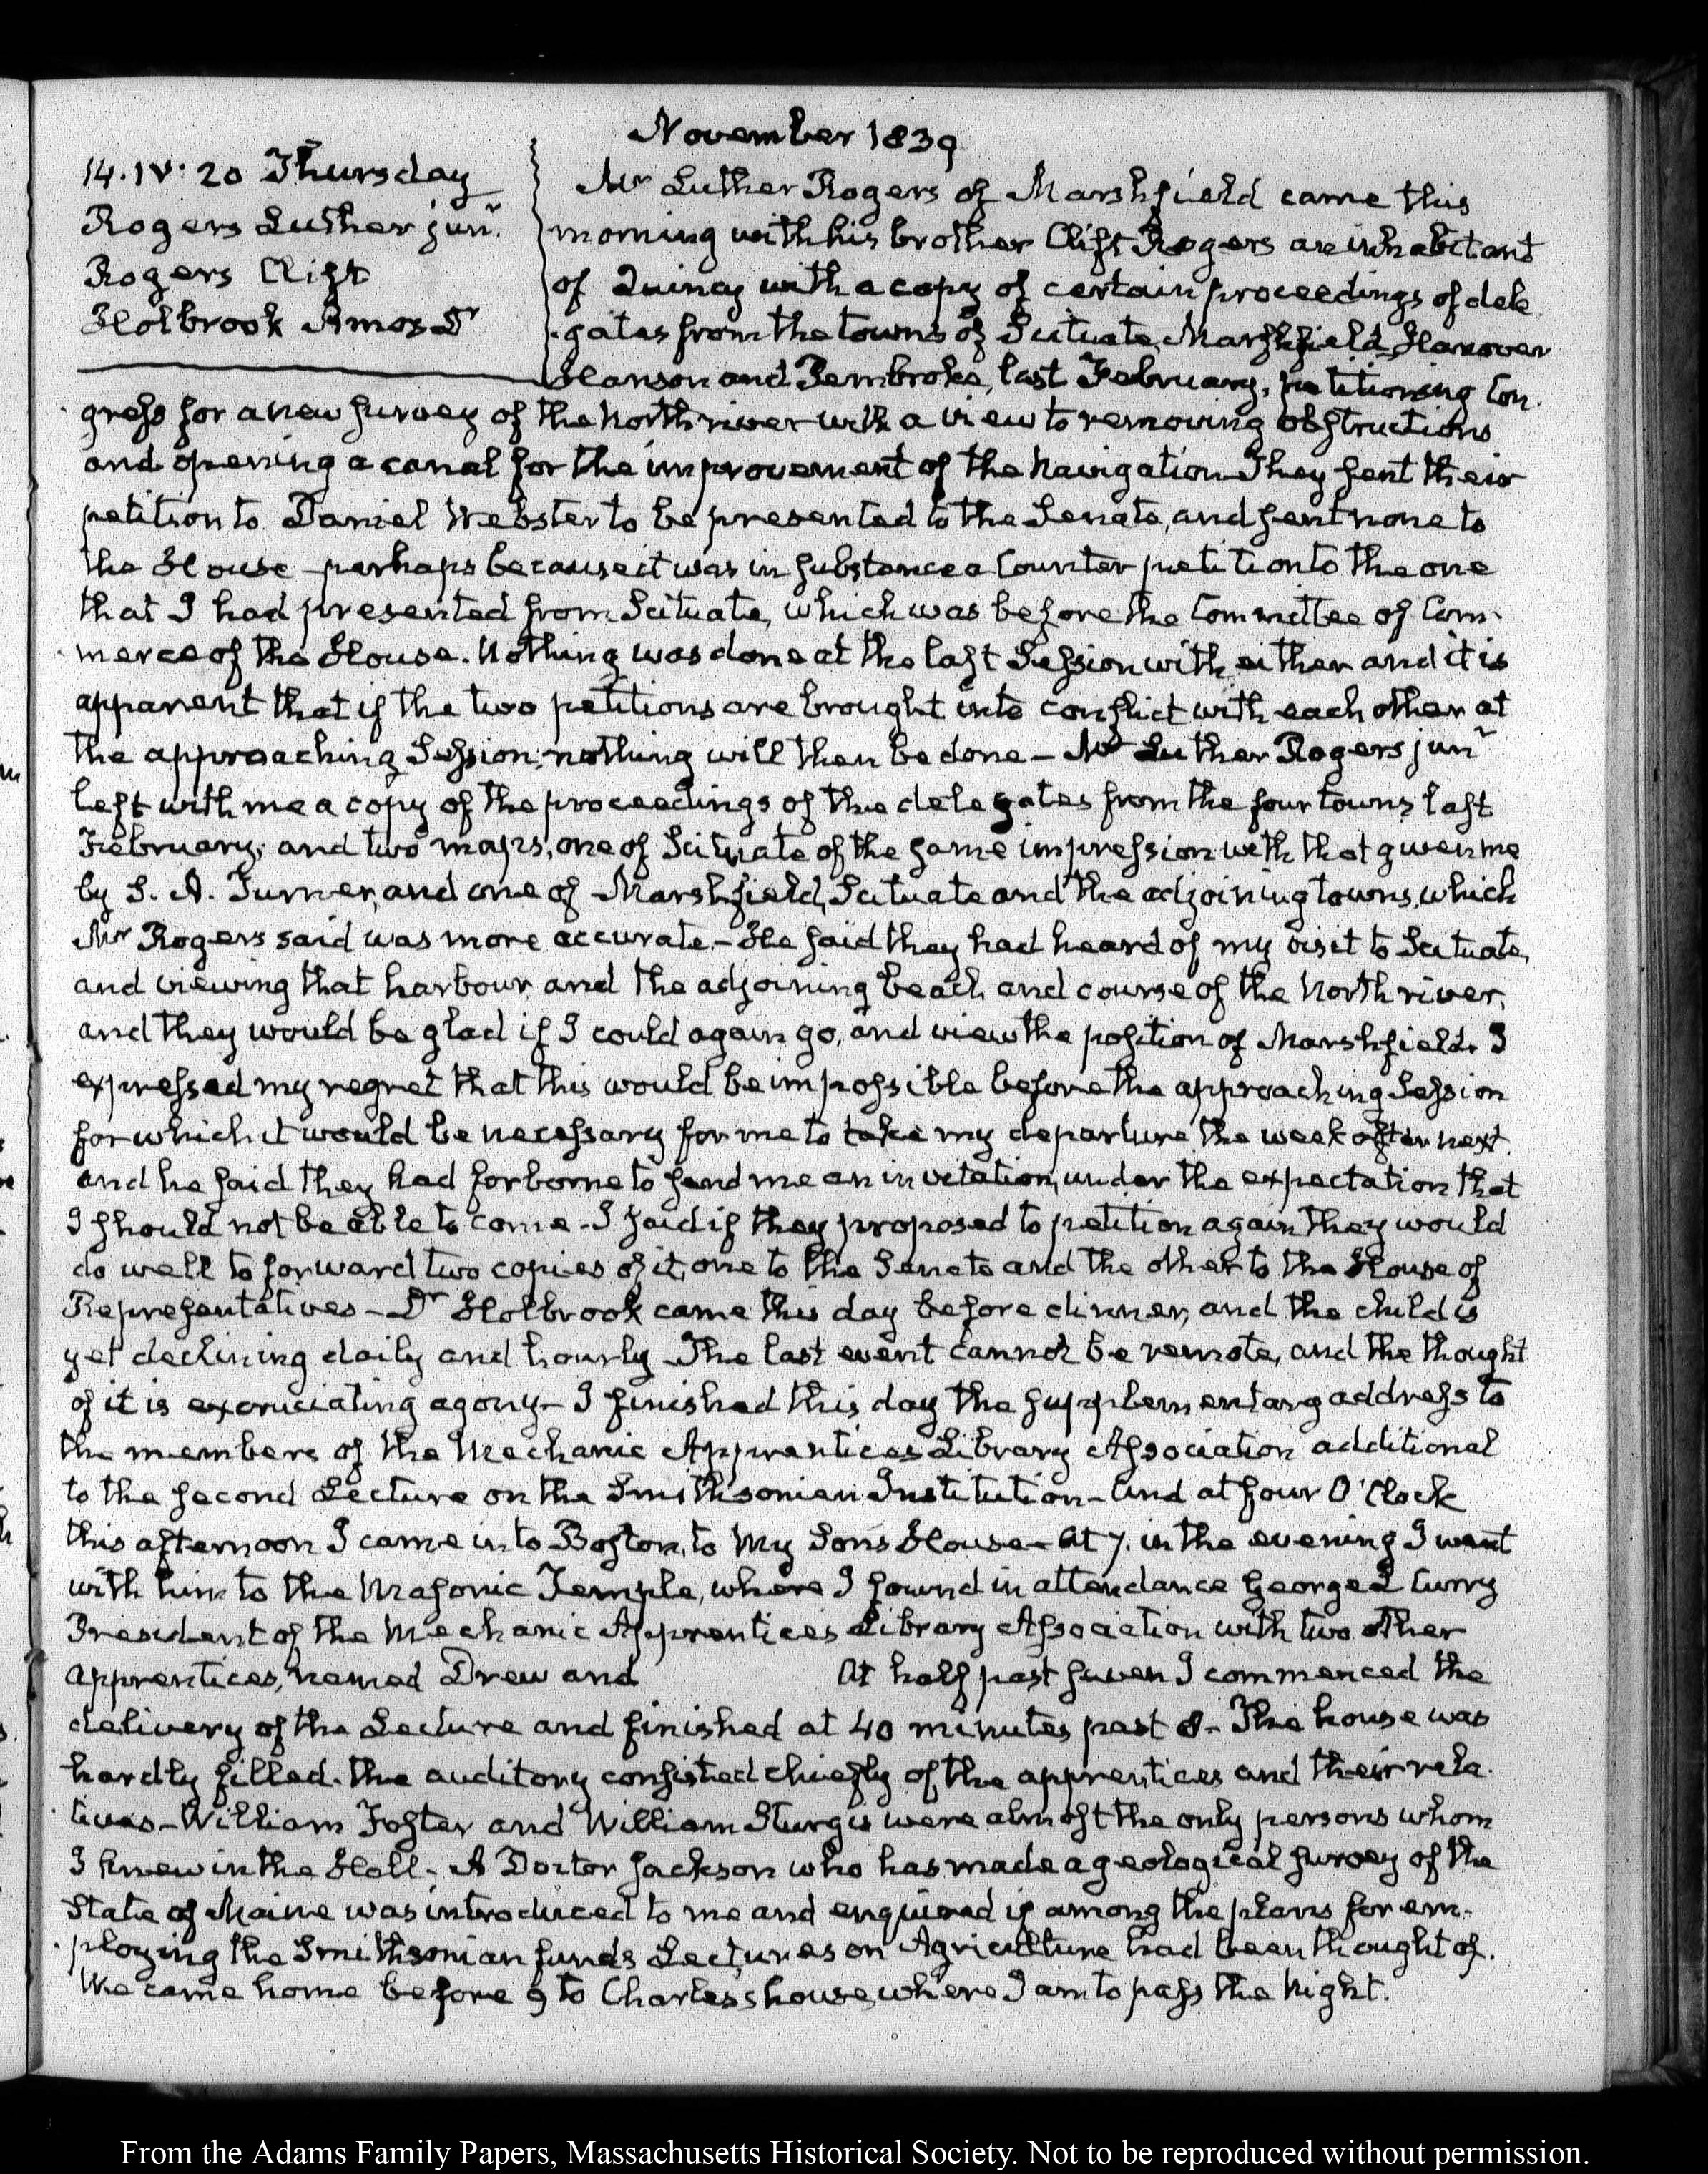 November 1839
14. IV: 20 Thursday
Rogers Luther junr.
Rogers Clift
Holbrook Amos Dr
Mr Luther Rogers of Marshfield came this
morning with his brother Clift Rogers an inhabitant
of Quincy with a copy of certain proceedings of dele
gates from the towns of Scituate, Marshfield, Hanover
Hanson and Pembroke, last February, petitioning Con-
gress for a new survey of the North river with a view to removing obstructions
and opening a canal for the improvement of the Navigation They sent their
petition to Daniel Webster to be presented to the Senate, and sent none to
the House—perhaps because it was in substance a Counter petition to the one
that I had presented from Scituate, which was before the Committee of Com-
merce of the House. Nothing was done at the last Session with either and it is
apparent that if the two petitions are brought into conflict with each other at
the approaching Session, nothing will then be done—Mr Luther Rogers junr
left with me a copy of the proceedings of the delegates from the four towns last
February, and two maps, one of Scituate of the same impression with that given me
by S. A. Turner, and one of Marshfield, Scituate and the adjoining towns, which
Mr Rogers said was more accurate.—He said they had heard of my visit to Scituate,
and viewing that harbour and the adjoining beach and course of the North river,
and they would be glad if I could again go, and view the position of Marshfield. I
expressed my regret that this would be impossible before the approaching Session
for which it would be necessary for me to take my departure the week after next.
and he said they had forborne to send me an invitation, under the expectation that
I should not be able to come.—I said if they proposed to petition again they would
do well to forward two copies of it, one to the Senate and the other to the House of
Representatives—Dr Holbrook came this day before dinner, and the child is
yet declining daily and hourly The last event cannot be remote, and the thought
of it is excruciating agony—I finished this day the supplementary address to
the members of the Mechanic Apprentices Library Association additional
to the second Lecture on the Smithsonian Institution—and at four O'Clock
this afternoon I came into Boston, to My Sons House—At 7. in the evening I went
with him to the Masonic Temple, where I found in attendance George L Curry
President of the Mechanic Apprentices Library Association with two other
apprentices, named Drew and At half past seven I commenced the
delivery of the Lecture and finished at 40 minutes past 8—The house was
hardly filled. the auditory consisted chiefly of the apprentices and their rela
tives—William Foster and William Sturgis were almost the only persons whom
I knew in the Hall—A Doctor Jackson who has made a geological survey of the
State of Maine was introduced to me and enquired if among the plans for em-
ploying the Smithsonian funds Lectures on Agriculture had been thought of.
We came home before 9 to Charles's house, where I am to pass the Night.
From the Adams Family Papers, Massachusetts Historical Society. Not to be reproduced without permission.